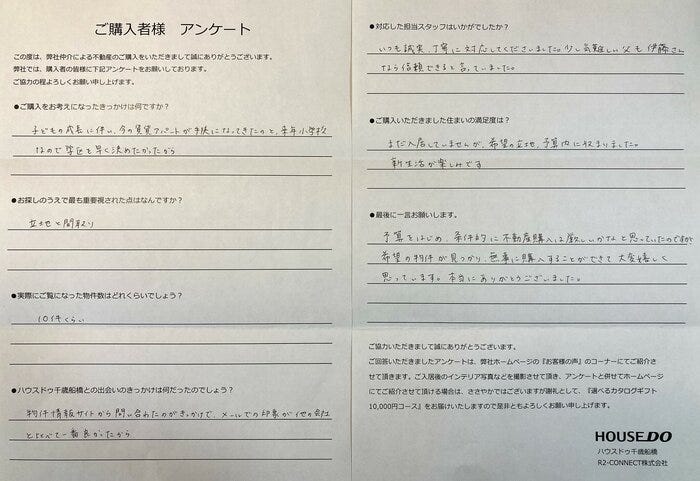 ご購入者様 アンケート
この度は、弊社仲介による不動産のご購入をいただきまして誠にありがとうございます。
弊社では、購入者の皆様に下記アンケートをお願いしております。
ご協力の程よろしくお願い申し上げます。
●ご購入をお考えになったきっかけは何ですか？
子どもの成長に伴い、今の賃貸アパートが手狭になってきたのと、来年小学校
なので学区を早く決めたかったから
●お探しのうえで最も重要視された点はなんですか？
立地と間取り
●実際にご覧になった物件数はどれくらいでしょう？
10件くらい
●ハウスドゥ千歳船橋との出会いのきっかけは何だったのでしょう？
物件情報サイトから問い合わたのがきっかけで、メールでの印象が他の会社
と比べて一番良かったから
●対応した担当スタッフはいかがでしたか？
いつも誠実、丁寧に対応してくださいました。少し気難しい父も伊藤さん
なら信頼できると言っていました。
●ご購入いただきました住まいの満足度は？
まだ入居していませんが、希望の立地、予算内に収まりました。
新生活が楽しみです
●最後に一言お願いします。
予算をはじめ、条件的に不動産購入は厳しいかなと思っていたのですが
希望の物件が見つかり、無事に購入することができて大変嬉しく
思っています。本当にありがとうございました。
ご協力いただきまして誠にありがとうございます。
ご回答いただきましたアンケートは、弊社ホームページの『お客様の声』のコーナーにてご紹介さ
せて頂きます。ご入居後のインテリア写真などを撮影させて頂き、アンケートと併せてホームページ
にてご紹介させて頂ける場合は、ささやかではございますが謝礼として、『選べるカタログギフト
10,000円コース』をお届けいたしますので是非ともよろしくお願い申し上げます。
HOUSEDO
ハウスドゥ千歳船橋
R2-CONNECT株式会社